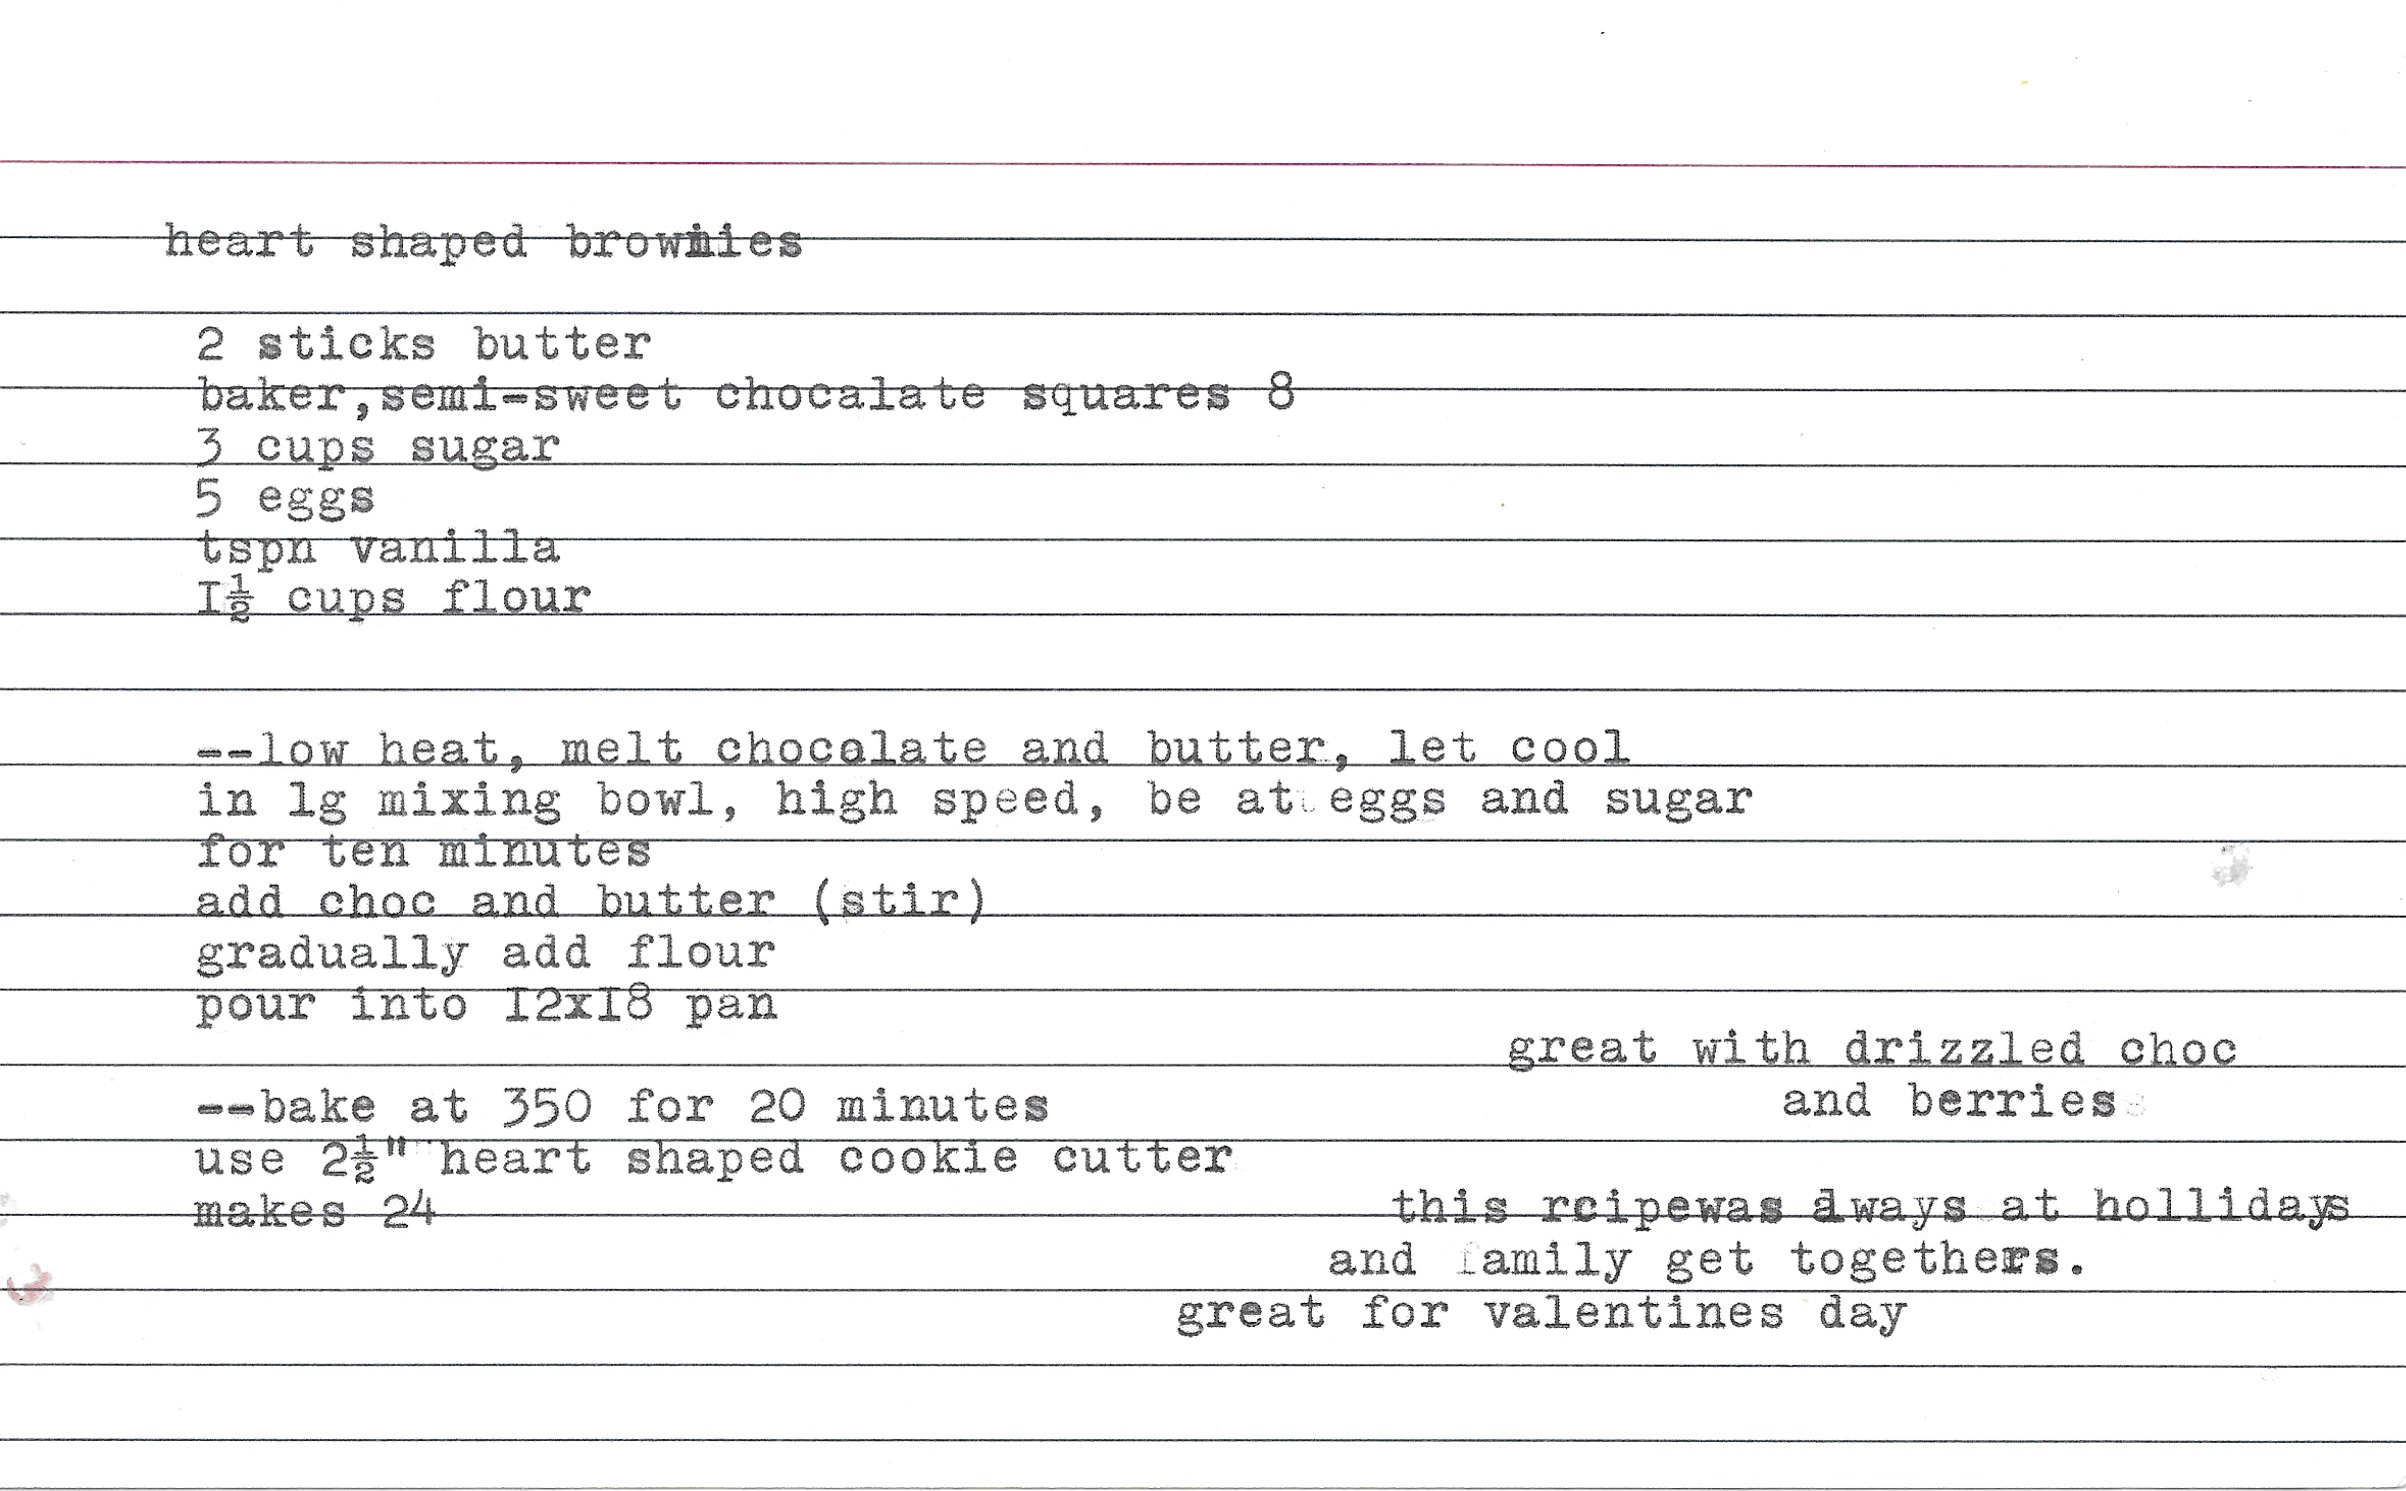 heart shaped brownies
2 sticks butter
baker,semi-sweet chocalate squares 8
3 cups sugar
5 eggs
tspn vanilla
I½ cups flour
--low heat, melt chocolate and butter, let cool
in lg mixing bowl, high speed, be at eggs and sugar
for ten minutes
add choc and butter (stir)
gradually add flour
pour into I2xI8 pan
great with drizzled choc
and berries
--bake at 350 for 20 minutes
use 2½" heart shaped cookie cutter
makes 24
this rcipewas always at hollidays
and family get togethers.
great for valentines day